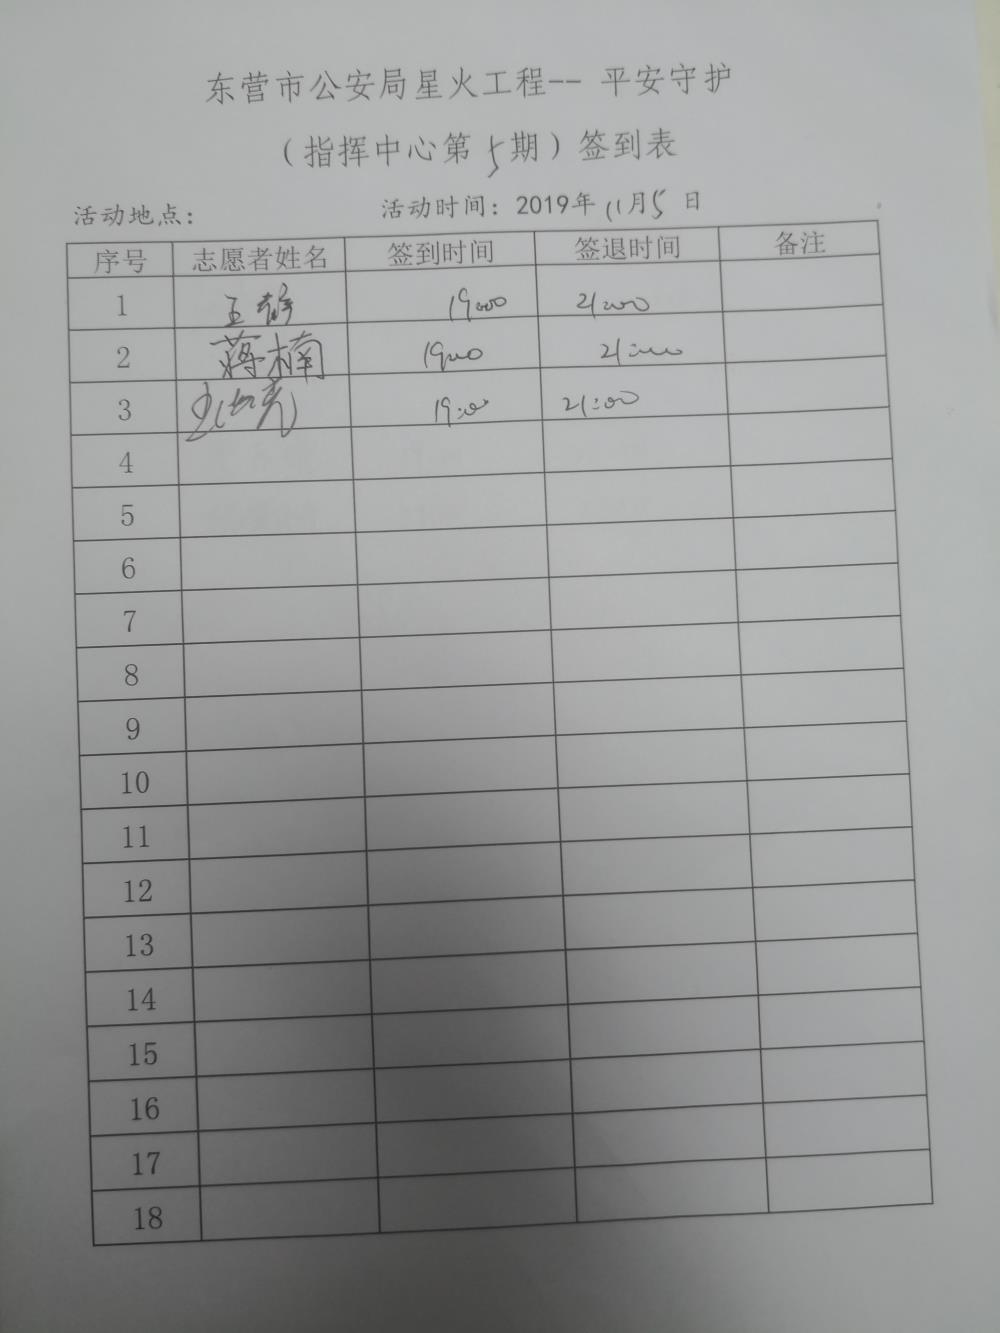 东营市公安局星火工程-- 平安守护
（指挥中心第5期）签到表
活动地点： 活动时间：2019年11月5日
序号 志愿者姓名 签到时间 签退时间 备注
1 王 19:00 21:00
2 蒋楠 19:00 21:00
3 19:00 21:00
4
5
6
7
8
9
10
11
12
13
14
15
16
17
18